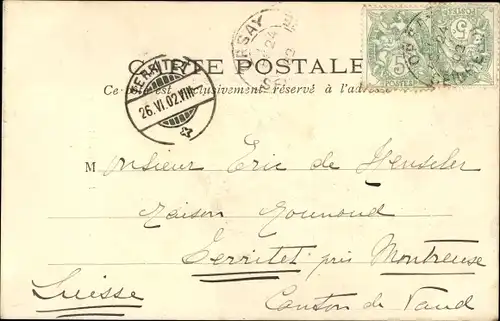 CARTE POSTALE
Ce côté est exclusivement réservé à l'adresse
ORSAY
24
5
5
POSTES
TERRITET
26.VI.02.VIII
Monsieur Eric de
Maison Mounoud
Territet près Montreux
Suisse
Canton de Vaud